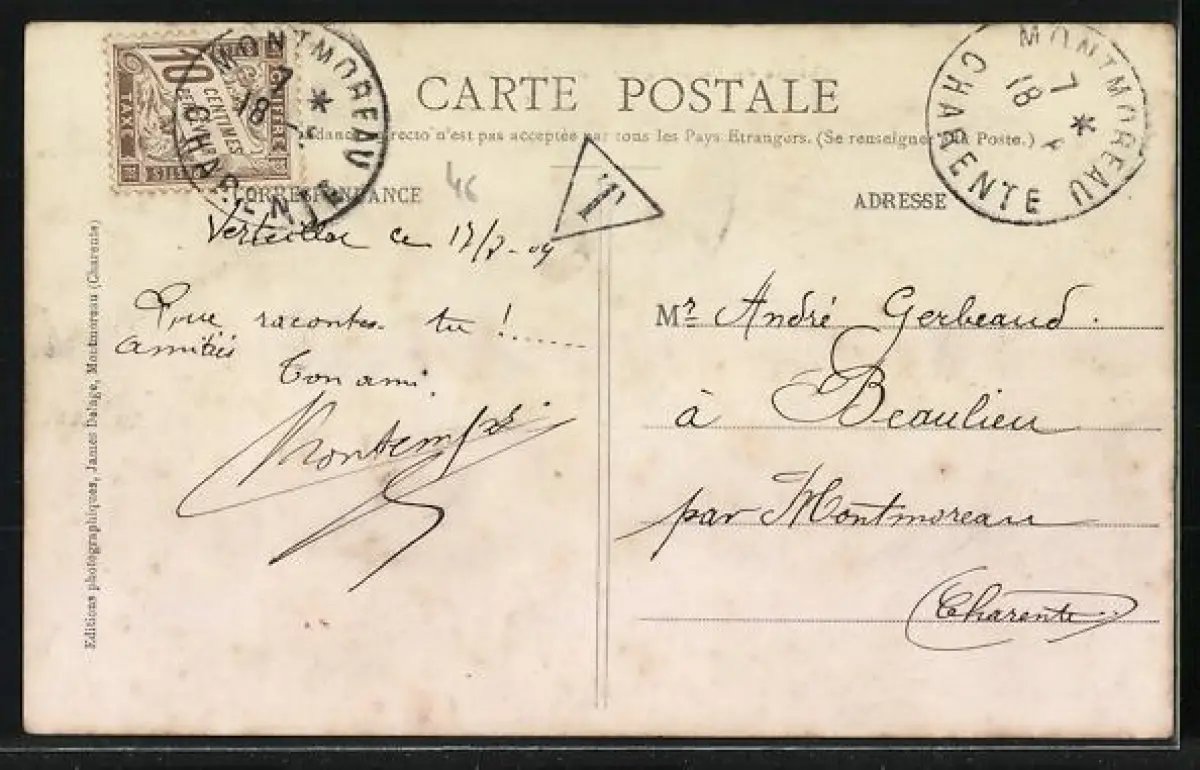 CARTE POSTALE
recto n'est pas acceptée par tous les Pays Etrangers. (Se renseigner La Poste.)
10 CENTIMES
TAXE
MONTMOREAU
18 7
CHARENTE
T
MONTMOREAU
18 7
CHARENTE
46
CORRESPONDANCE
ADRESSE
Verteillac ce 17/7-09
Que racontes-tu !......
Amitiés
Ton ami
Mr André Gerbeaud.
à Beaulieu
par Montmoreau
(Charente)
Editions photographiques, James Delage, Montmoreau (Charente)